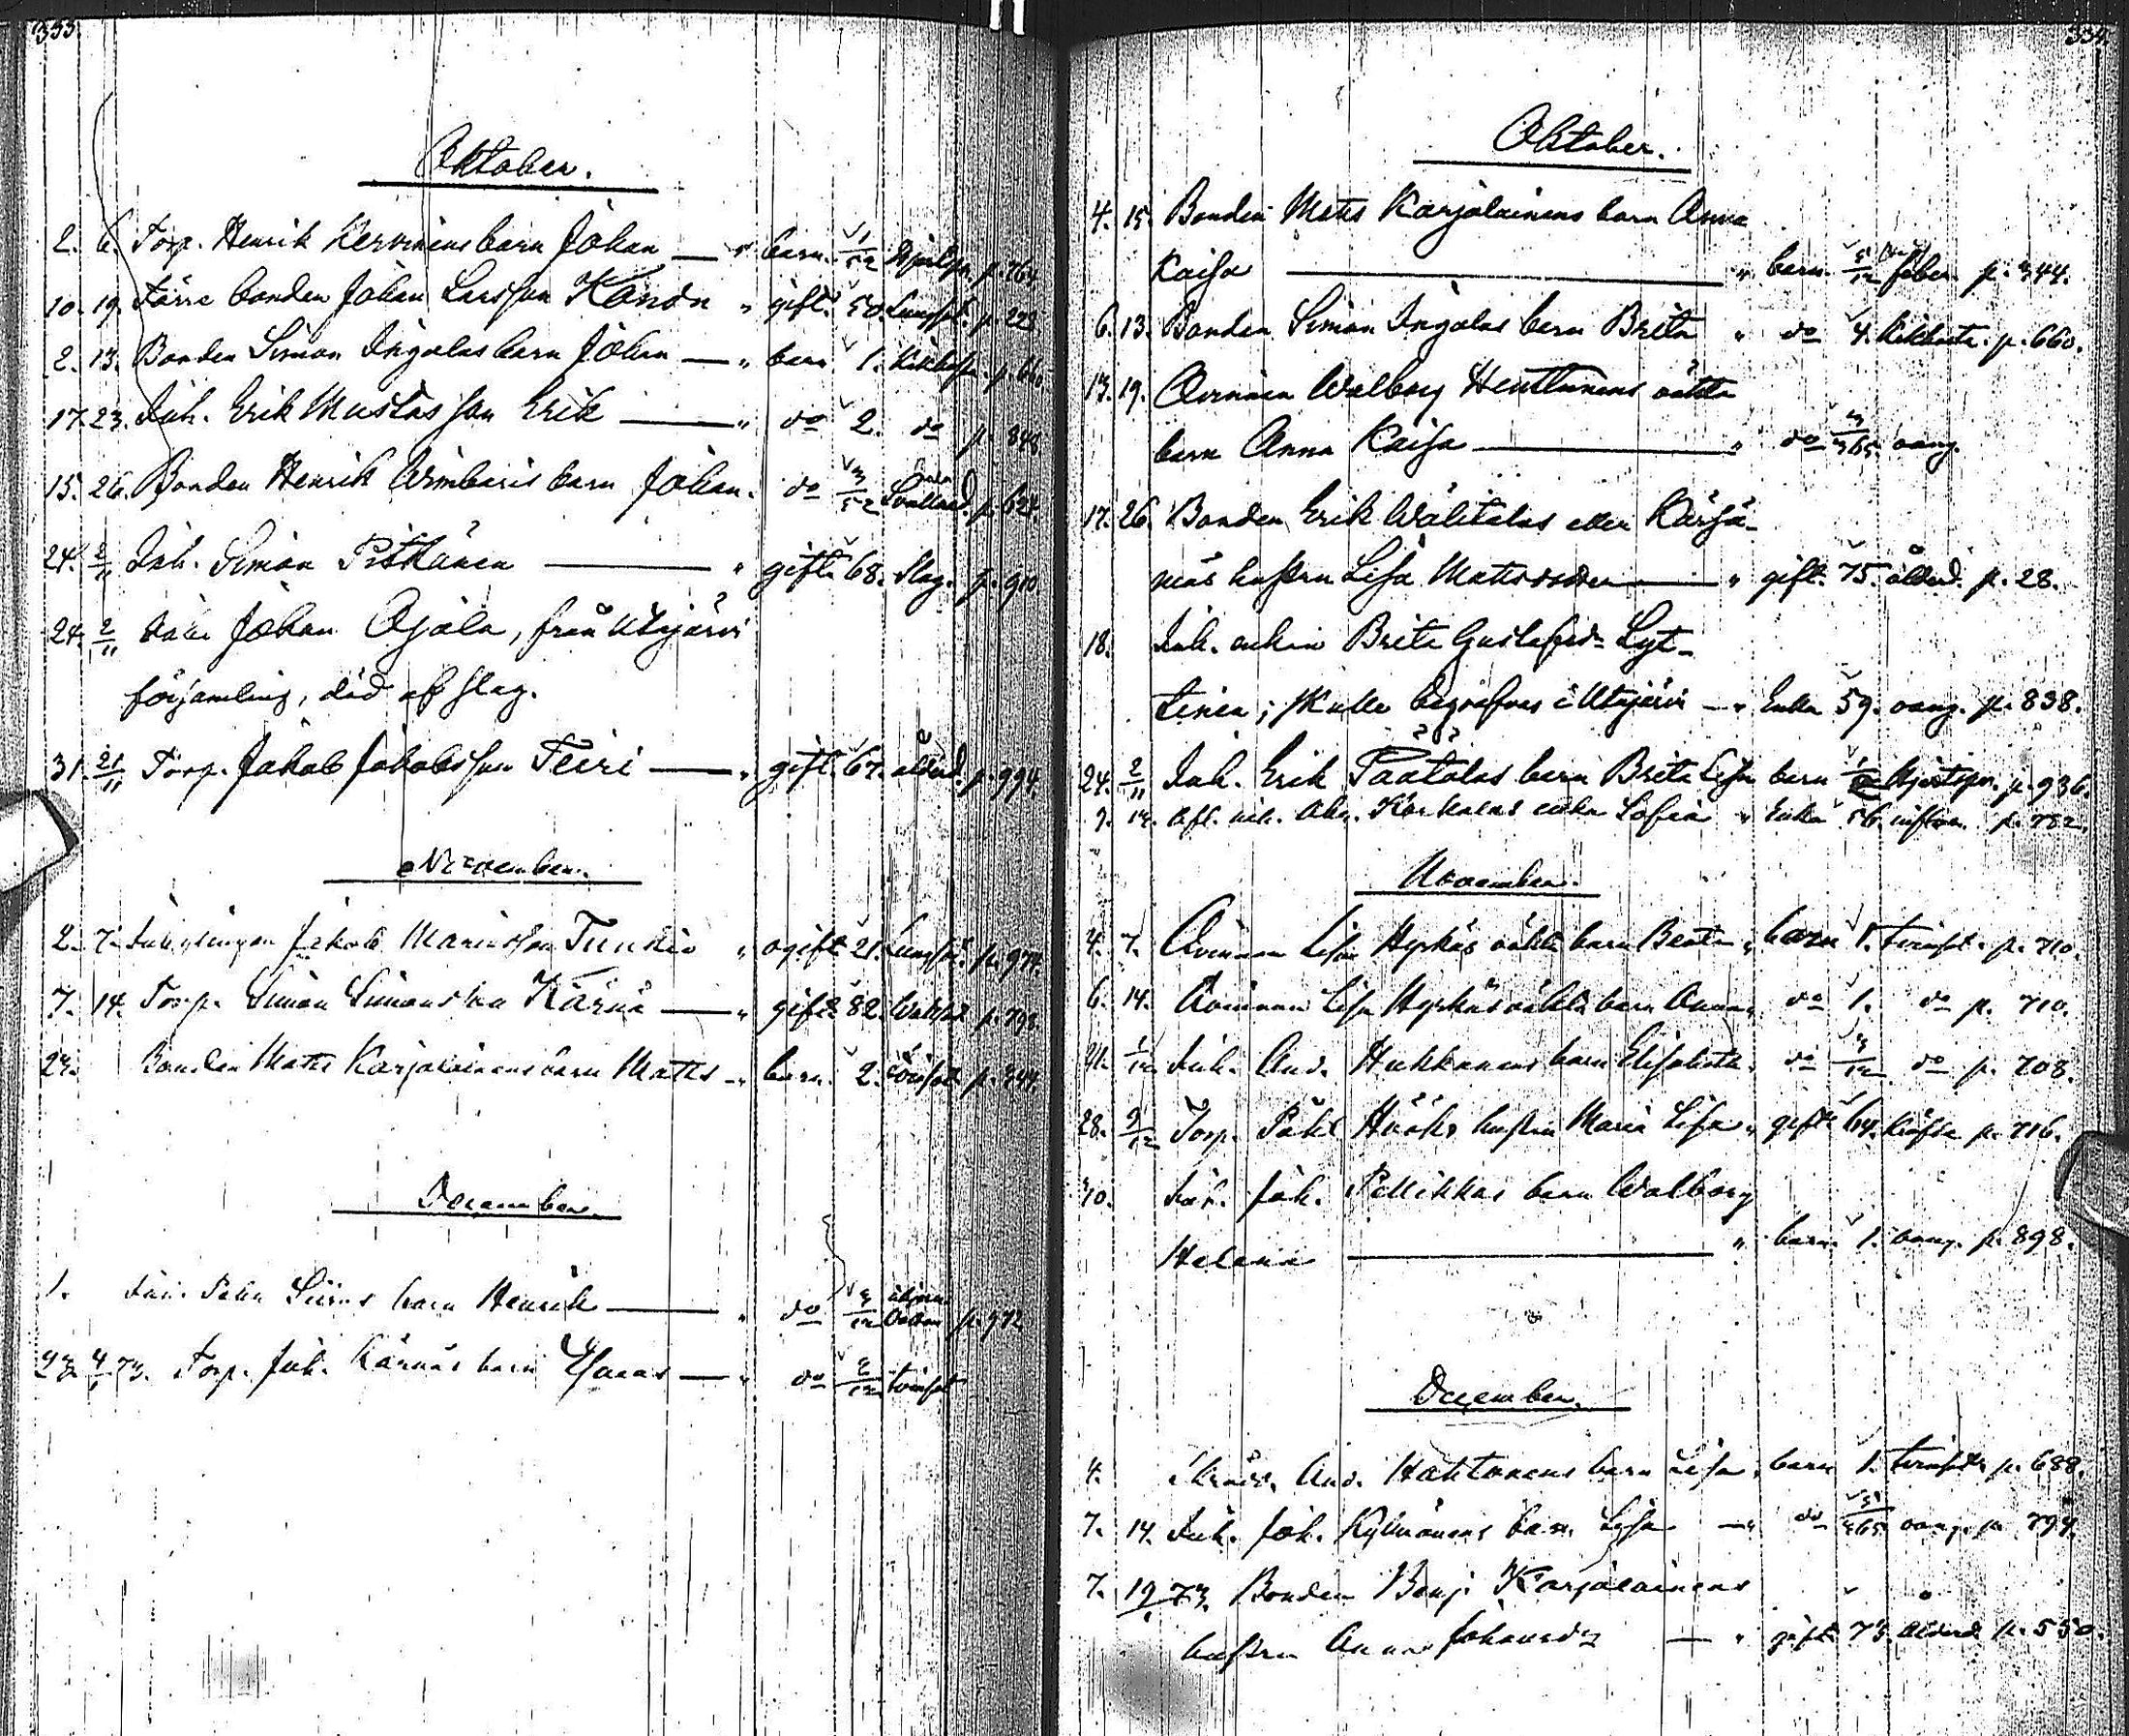 333.
Oktober.
2. 6. Torp. Henrik Kervinens barn Johan — " barn 1/52 p. 764
10. 19. Förre bonden Johan Larsson Kandn " gift 50. Lungsot. p. 222
2. 13. Bonden Simon Ingalas barn Johan — " barn 1. Kikhosta p. 660
17. 23. Inh. Erik Mustas son Erik — " do 2. do p. 848
15. 26. Bonden Henrik Wimbaris barn Johan. do 3/52 p. 624.
24. 2/11 Inh. Simon Pitkänen — " gift 68. Slag. p. 910
24. 2/11 Johan Ojala, från Utajärvi
församling, död af slag.
31. 21/11 Torp. Jakob Jakobsson Teiri — " gift 67. ålderd. p. 994.
November.
2. 7. Jakob Mariasson Tuukia " ogift 21. Lungsot. p. 974.
7. 14. Torp. Simon Simonsson Kärnä — " gift 82. p. 798
23. Bonden Matts Karjalainens barn Matts — " barn 2. p. 344.
December.
1. barn Henrik — " do 3/12 p. 972
23. 4/1 73. Torp. Joh. Kärnäs barn Esaias — " do 2/12 tvinsot
334.
Oktober.
4. 15. Bonden Matts Karjalainens barn Anna
Kaisa — " barn 5/12 feber p. 344.
6. 13. Bonden Simon Ingalas barn Brita " do 4. Kikhosta. p. 660.
13. 19. Qvinnan Walborg Henttunens oäkta
barn Anna Kaisa — " do 3/365. oang.
17. 26. Bonden Erik Wälitalos eller Kärsä-
mäs hustru Lisa Matsdoter — " gift. 75. ålderd. p. 28.
18. Inh. enkan Brita Gustafsdr Lyt-
tinen; skulle begrafvas i Utajärvi — " Enka 59. oang. p. 838.
24. 2/11 Inh. Erik Päätalos barn Brita Lisa barn p. 936.
7. 14. Afl. inh. Abr. Korkalas enka Sofia " Enka 56. p. 782.
November.
4. 7. Qvinnan Lisa Hyrkäs oäkta barn Beata " barn 1. tvinsot. p. 710.
6. 14. Qvinnan Lisa Hyrkäs oäkta barn Anna " do 1. do p. 710.
21. 1/12 Inh. And. Hukkanens barn Elisabeth " do 3/12 do p. 708.
28. 9/12 Torp. Påhl Hööks hustru Maria Lisa " gift 64. Kräfta p. 716.
30. Inh. Joh. Pellikkas barn Walborg
Helena — " barn 1. oang. p. 898.
December.
4. And. Hahtonens barn Lisa " barn 1. tvinsot p. 688.
7. 14. Inh. Joh. Kylmänens barn Lisa — " do 5/365 oang. p. 794.
7. 19/1 73. Bonden Benj. Karjalainens
hustru Anna Johansdr — " gift 73. ålderd. p. 550.